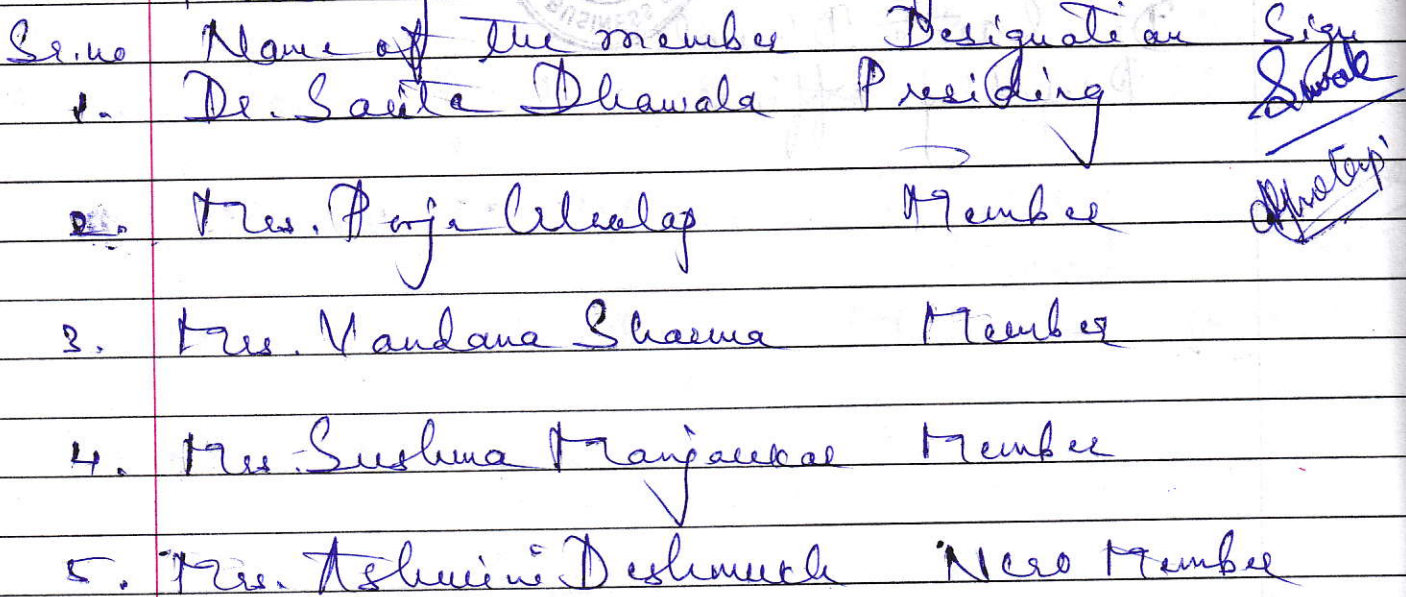 Sr.no Name of the member Designation Sign
1. Dr. Savita Dhawala Presiding
2. Mrs. Pooja Gholap Member
3. Mrs. Vandana Sharma Member
4. Mrs. Sushma Manjarekar Member
5. Mrs. Ashwini Deshmukh Member